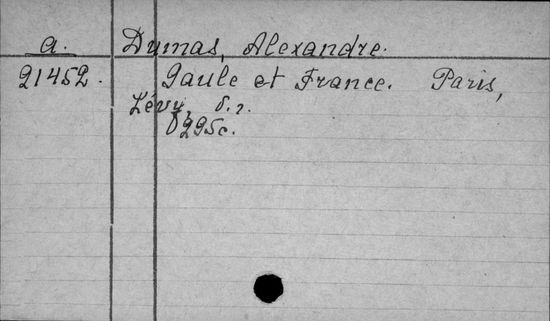 a. Dumas, Alexandre.
21452. Gaule et France. Paris,
Lévy, s. d.
295c.